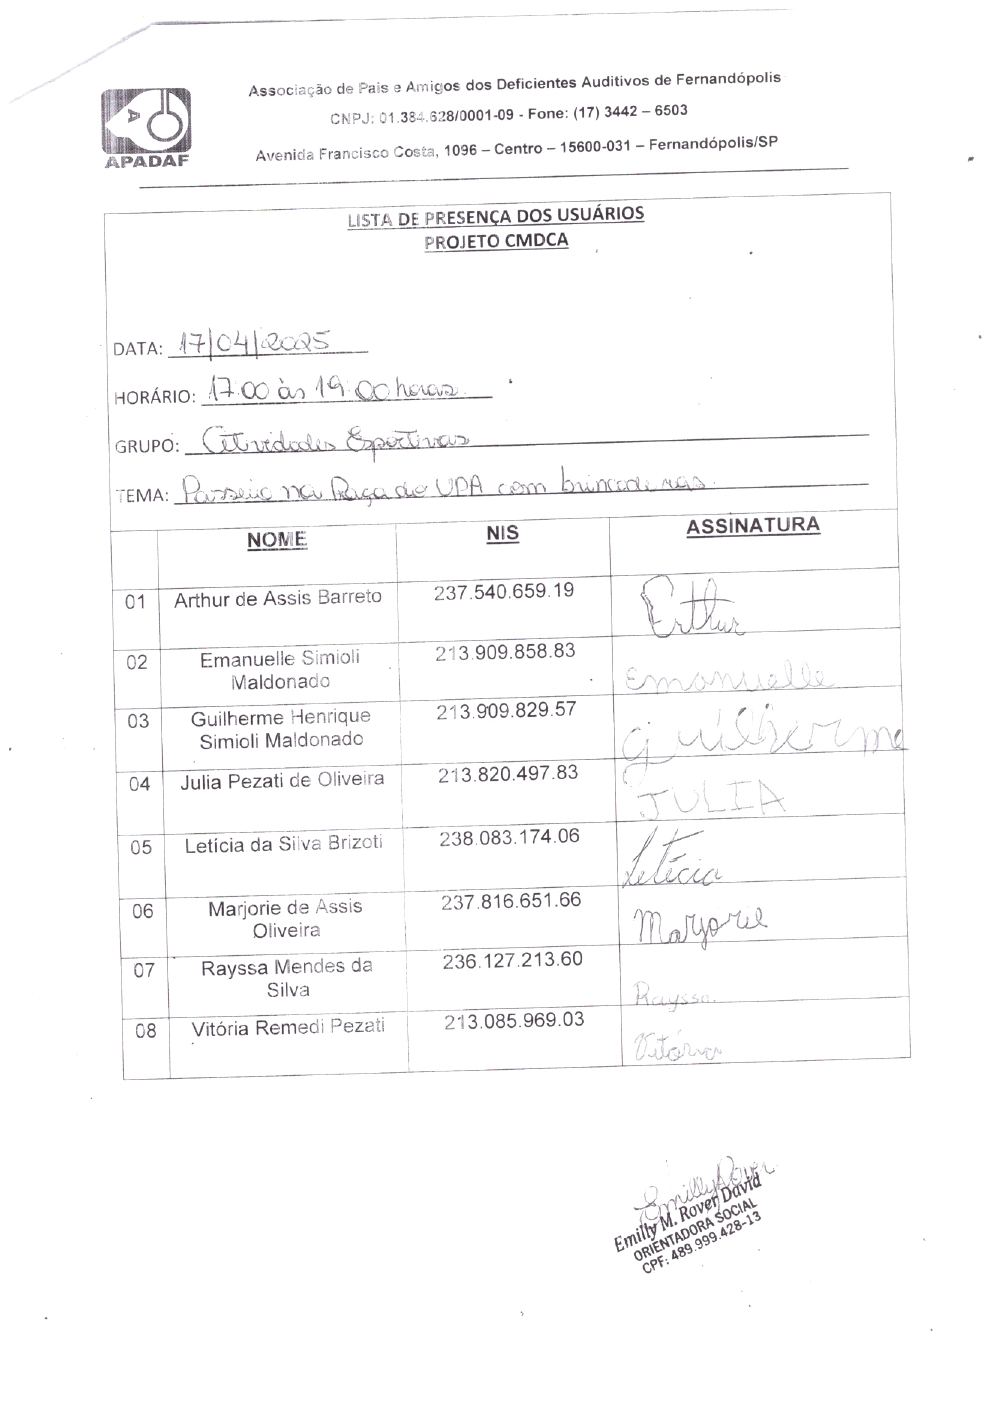 APADAF
Associação de Pais e Amigos dos Deficientes Auditivos de Fernandópolis
CNPJ: 01.384.628/0001-09 - Fone: (17) 3442 – 6503
Avenida Francisco Costa, 1096 – Centro – 15600-031 – Fernandópolis/SP
LISTA DE PRESENÇA DOS USUÁRIOS
PROJETO CMDCA
DATA: 17/04/2025
HORÁRIO: 17:00 às 19:00 horas.
GRUPO: Atividades Esportivas
TEMA: Passeio na Praça do UPA com brincadeiras.
NOME NIS ASSINATURA
01 Arthur de Assis Barreto 237.540.659.19 Arthur
02 Emanuelle Simioli Maldonado 213.909.858.83 Emanuelle
03 Guilherme Henrique Simioli Maldonado 213.909.829.57 guilherme
04 Julia Pezati de Oliveira 213.820.497.83 JULIA
05 Letícia da Silva Brizoti 238.083.174.06 Letícia
06 Marjorie de Assis Oliveira 237.816.651.66 Marjorie
07 Rayssa Mendes da Silva 236.127.213.60 Rayssa.
08 Vitória Remedi Pezati 213.085.969.03 Vitória
Emilly Rover
Emilly M. Rover David
ORIENTADORA SOCIAL
CPF: 489.999.428-13